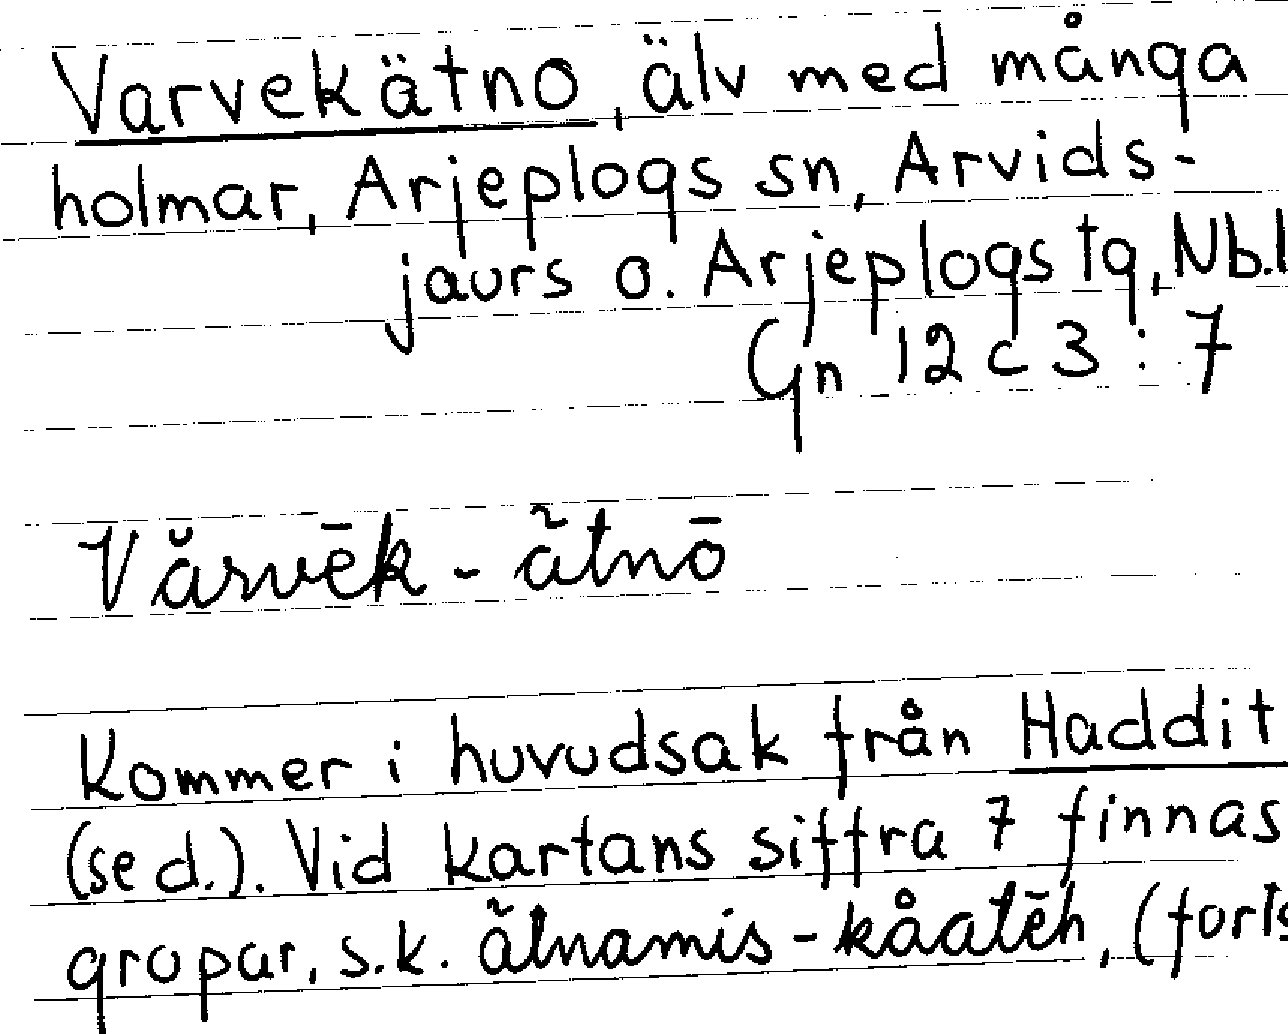 Varvekätno, älv med många
holmar, Arjeplogs sn, Arvids-
jaurs o. Arjeplogs tg, Nb.l
Gn 12 c 3 : 7
Vårvēk - ãtnō
Kommer i huvudsak från Haddit
(se d.). Vid kartans siffra 7 finnas
gropar, s.k. ãtnamis-kåatēh, (forts